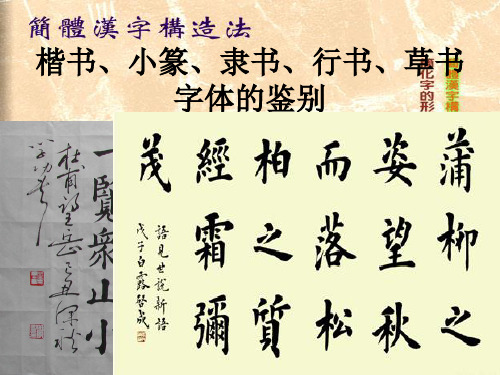 簡體漢字構造法
楷书、小篆、隶书、行书、草书
字体的鉴别
體漢字構
化字的形
蒲柳之
姿望秋
而落松
柏之質
經霜彌
茂
語見世說新語
戊子白露
一覽衆山小
杜甫望岳